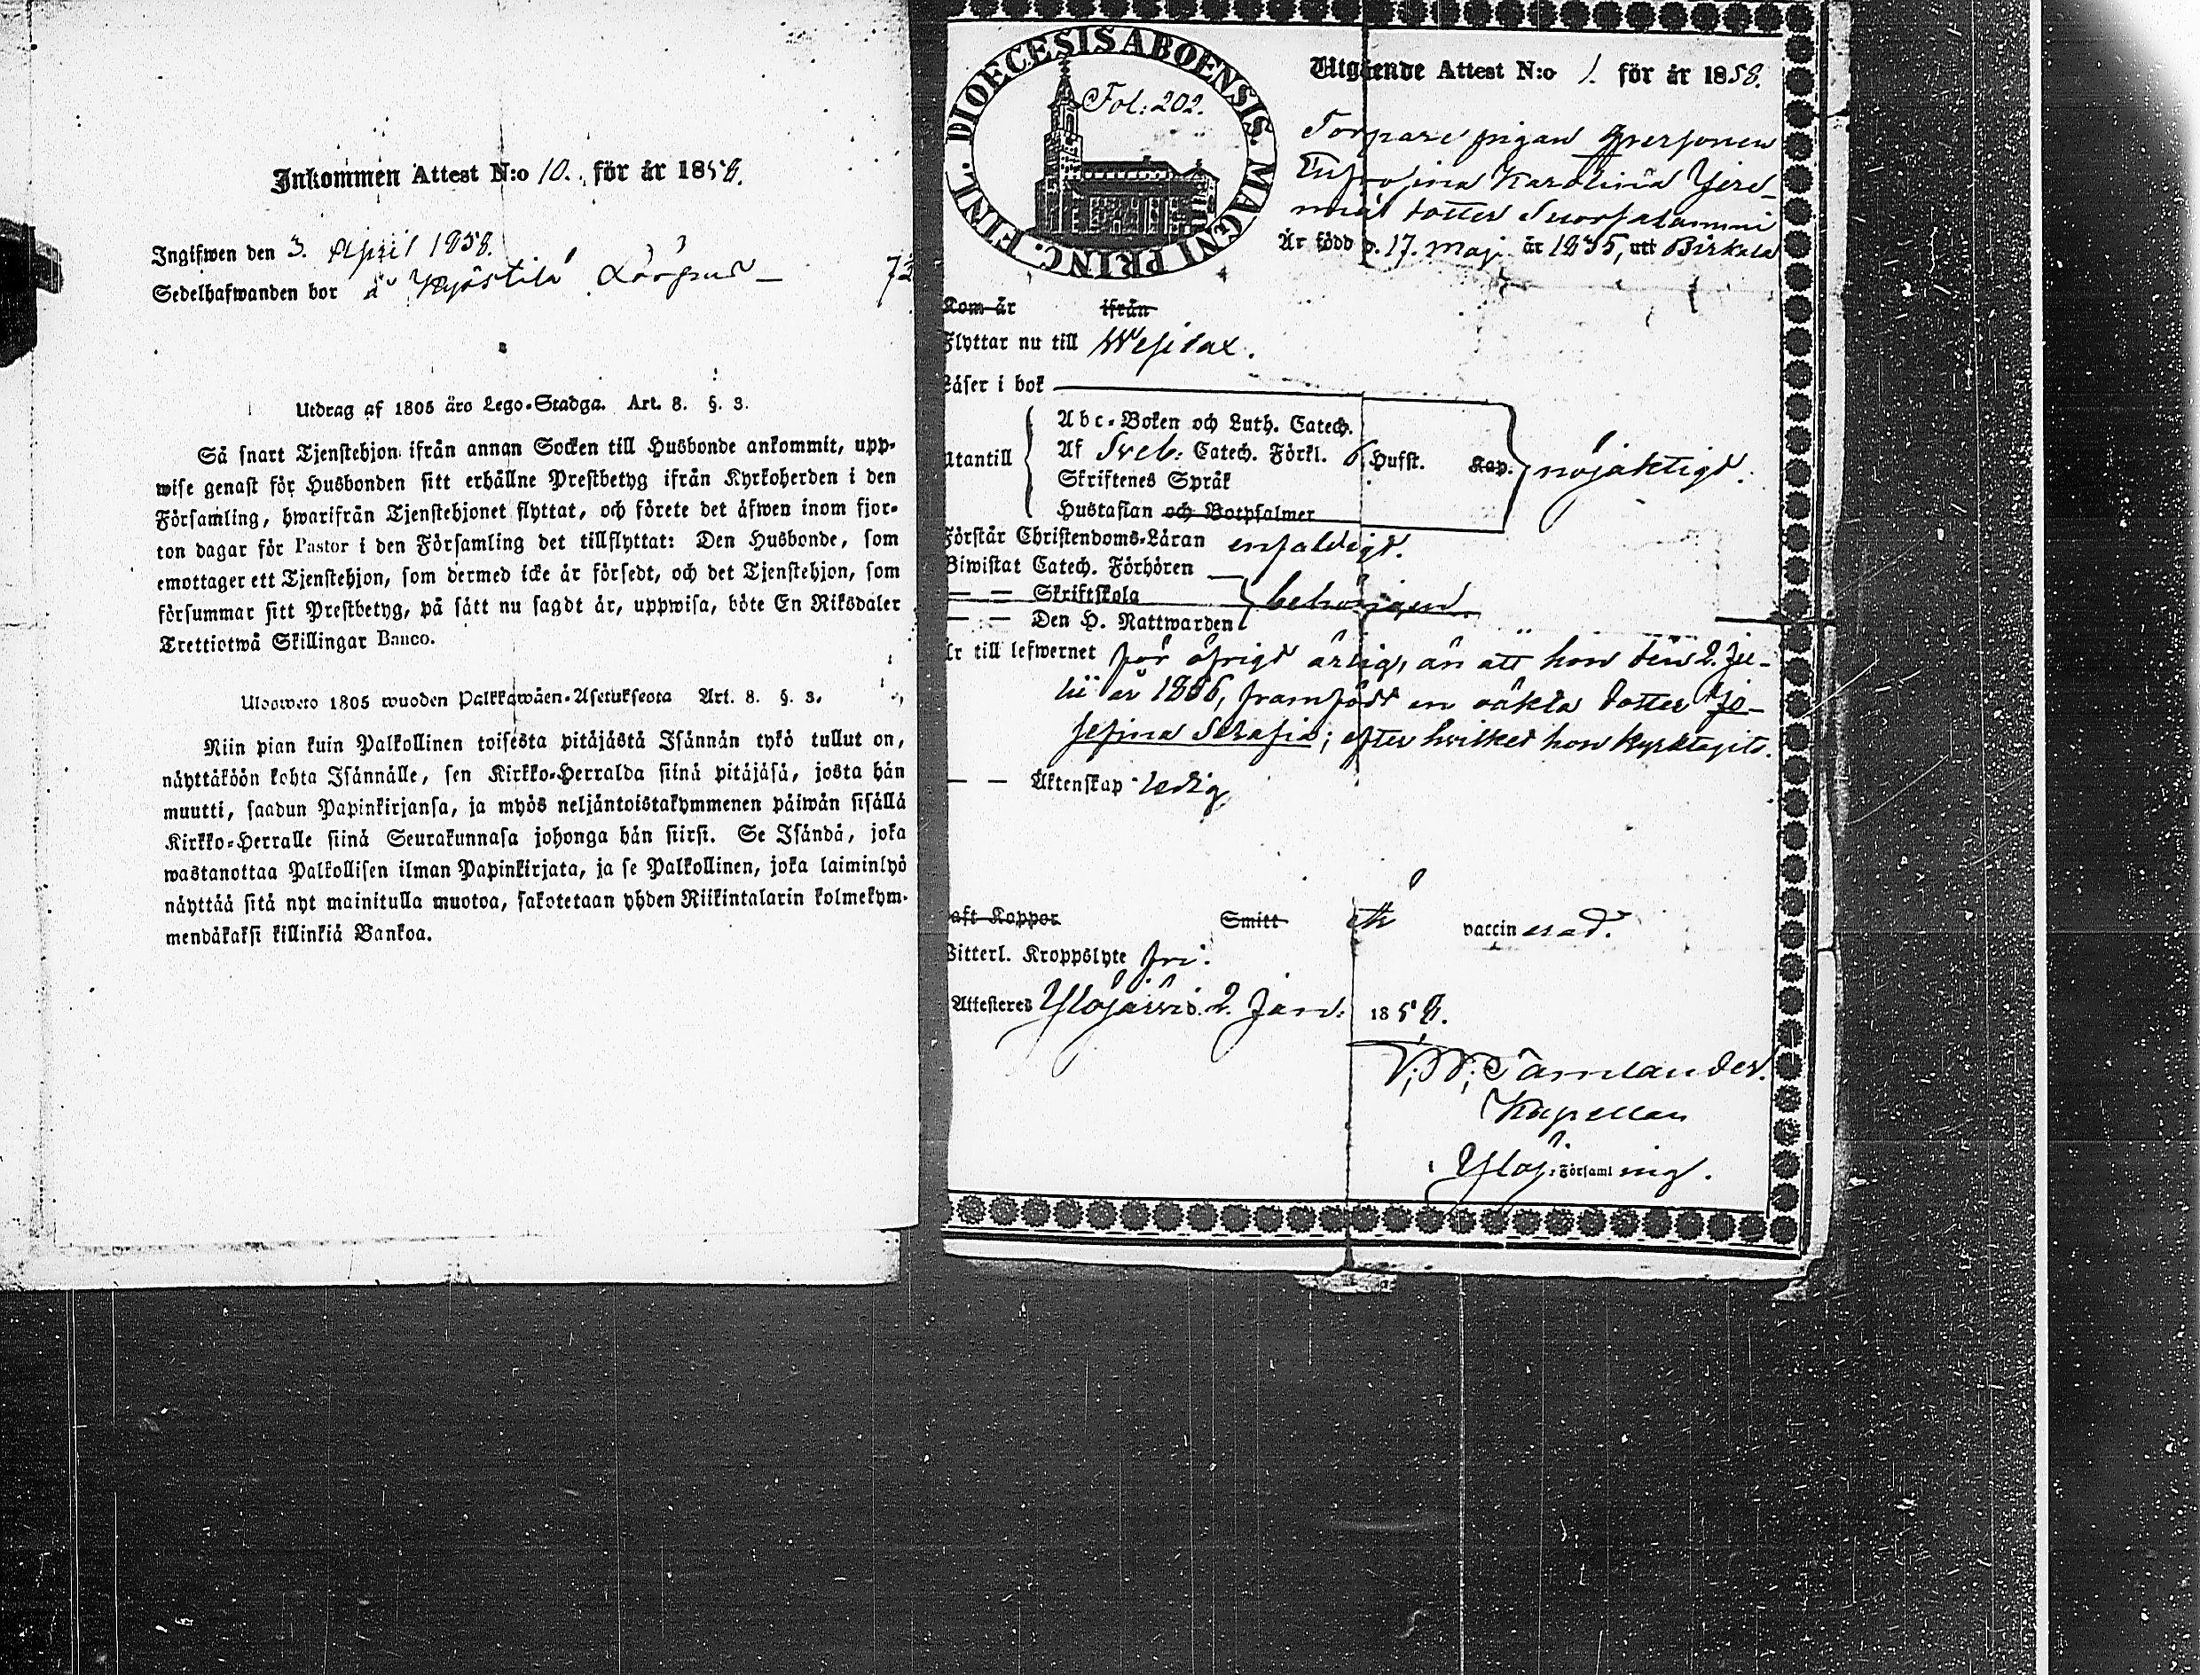 Inkommen Attest N:o 10. för år 1858.
Ingifwen den 3. April 1858.
Sedelhafwanden bor å Kyöstilä
Utdrag af 1805 års Lego-Stadga. Art. 8. §. 3.
Så snart Tjenstehjon ifrån annan Socken till Husbonde ankommit, upp-
wise genast för Husbonden sitt erhållne Prestbetyg ifrån Kyrkoherden i den
Församling, hwarifrån Tjenstehjonet flyttat, och förete det äfwen inom fjor-
ton dagar för Pastor i den Församling det tillflyttat: Den Husbonde, som
emottager ett Tjenstehjon, som dermed icke är försedt, och det Tjenstehjon, som
försummar sitt Prestbetyg, på sätt nu sagdt är, uppwisa, böte En Riksdaler
Trettiotwå Skillingar Banco.
Ulosweto 1805 wuoden Palkkawäen-Asetuksesta Art. 8. §. 3.
Niin pian kuin Palkollinen toisesta pitäjästä Isännän tykö tullut on,
näyttäköön kohta Isännälle, sen Kirkko-Herralda siinä pitäjäsä, josta hän
muutti, saadun Papinkirjansa, ja myös neljäntoistakymmenen päiwän sisällä
Kirkko-Herralle siinä Seurakunnasa johonga hän siirsi. Se Isändä, joka
wastanottaa Palkollisen ilman Papinkirjata, ja se Palkollinen, joka laiminlyö
näyttää sitä nyt mainitulla muotoa, sakotetaan yhden Riikintalarin kolmekym-
mendäkaksi killinkiä Bankoa.
DIOECESIS ABOENSIS MAGNI PRINC. FINL.
Fol: 202.
Utgående Attest N:o 1. för år 1858.
Torpare pigan Qversonen
Eufrosina Karolina Jere-
mias dotter Suorsalammi
Är född d. 17. Maj år 1835, uti Birkala
Kom år ifrån
Flyttar nu till Wesilax.
Läser i bok
Utantill
Abc-Boken och Luth. Catech.
Af Sveb: Catech. Förkl. 6 Hufst. Kap.
Skriftenes Språk
Hustaflan och Botpsalmer
nöjaktigt.
Förstår Christendoms-Läran enfaldigt.
Biwistat Catech. Förhören
— — Skriftskola
— — Den H. Nattwarden
behörigen
Är till lefwernet för öfrigt ärlig, än att hon den 2. Ju-
lii år 1856, framfödt en oäkta dotter Jo-
sefina Serafia; efter hvilket hon kyrktagits.
— — Äktenskap ledig
Haft Koppor Smitt vaccinerad.
Witterl. Kroppslyte fri.
Attesteres Ylöjärvi d. 2. Jan. 1858.
Kapellan
i Ylöj. Församling.